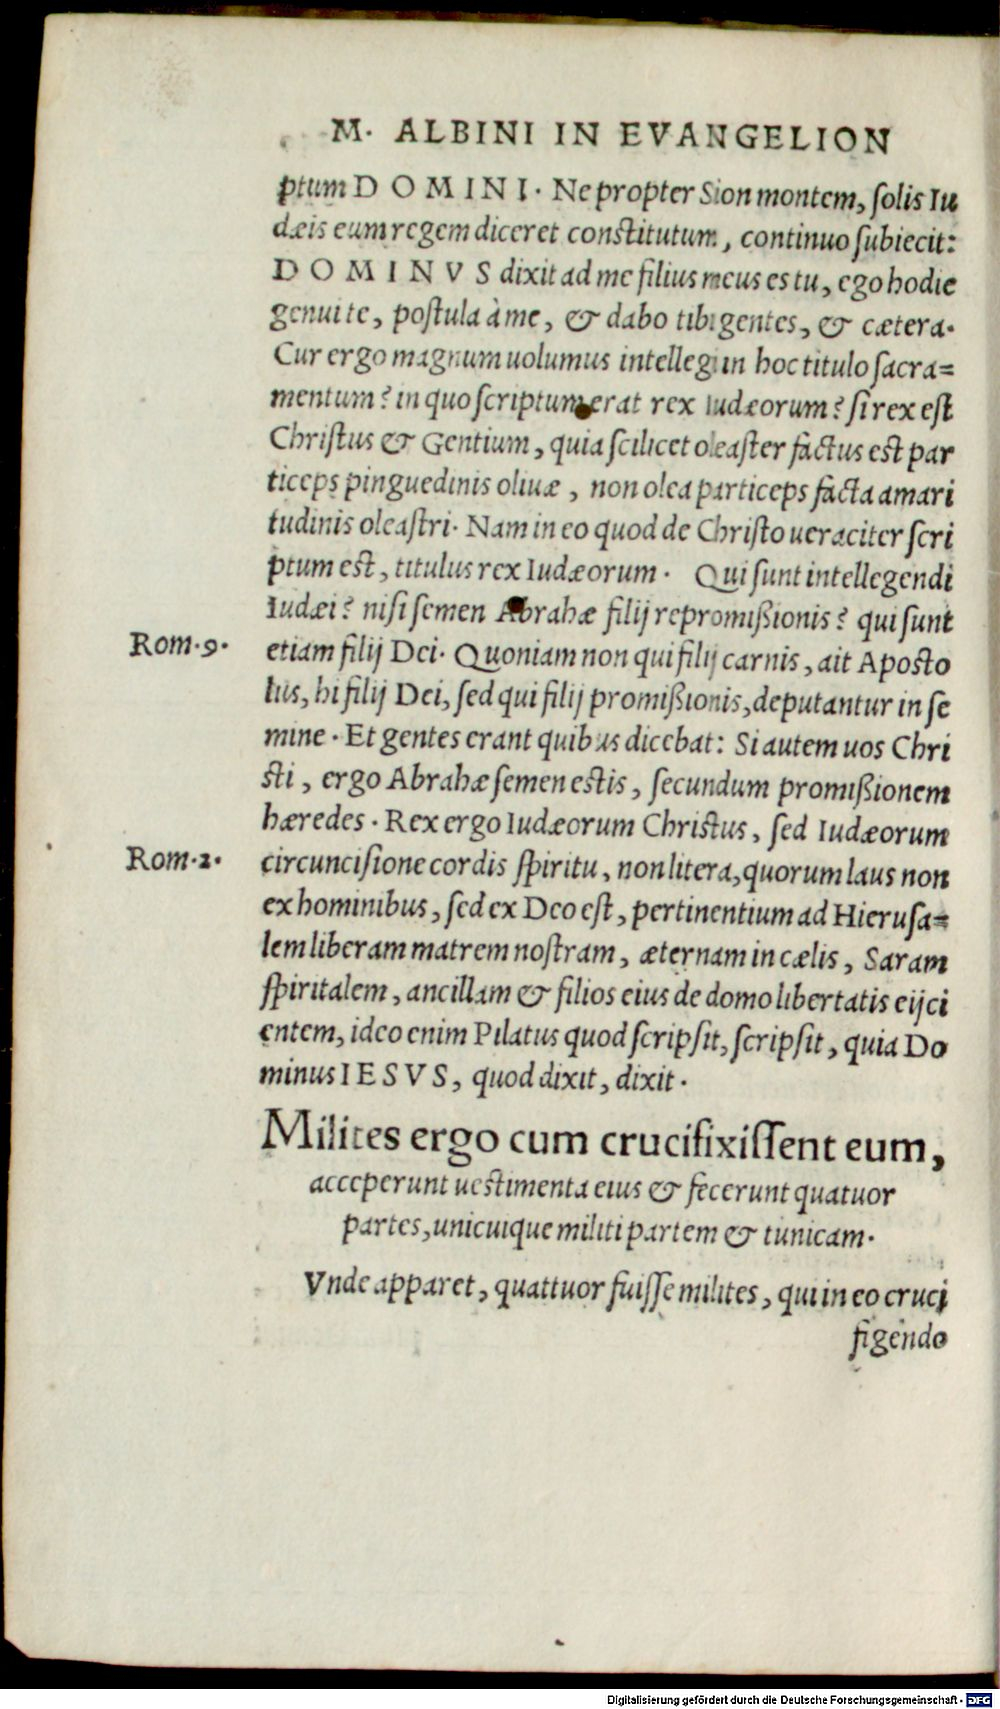 M. ALBINI IN EVANGELION
ptum DOMINI. Ne propter Sion montem, ſolis Iu
dæis eum regem diceret conſtitutum, continuo ſubiecit:
DOMINVS dixit ad me filius meus es tu, ego hodie
genui te, poſtula à me, & dabo tibi gentes, & cætera.
Cur ergo magnum uolumus intellegi in hoc titulo ſacra=
mentum? in quo ſcriptum erat rex Iudæorum? ſi rex eſt
Chriſtus & Gentium, quia ſcilicet oleaſter factus eſt par
ticeps pinguedinis oliuæ, non olea particeps facta amari
tudinis oleaſtri. Nam in eo quod de Chriſto ueraciter ſcri
ptum eſt, titulus rex Iudæorum. Qui ſunt intellegendi
Iudæi? niſi ſemen Abrahæ filij repromißionis? qui ſunt
Rom.9. etiam filij Dei. Quoniam non qui filij carnis, ait Apoſto
lus, hi filij Dei, ſed qui filij promißionis, deputantur in ſe
mine. Et gentes erant quibus dicebat: Si autem uos Chri
ſti, ergo Abrahæ ſemen eſtis, ſecundum promißionem
hæredes. Rex ergo Iudæorum Chriſtus, ſed Iudæorum
Rom.2. circunciſione cordis ſpiritu, non litera, quorum laus non
ex hominibus, ſed ex Deo eſt, pertinentium ad Hieruſa=
lem liberam matrem noſtram, æternam in cælis, Saram
ſpiritalem, ancillam & filios eius de domo libertatis eijci
entem, ideo enim Pilatus quod ſcripſit, ſcripſit, quia Do
minus IESVS, quod dixit, dixit.
Milites ergo cum crucifixiſſent eum,
acceperunt ueſtimenta eius & fecerunt quatuor
partes, unicuique militi partem & tunicam.
Vnde apparet, quattuor fuiſſe milites, qui in eo cruci
figendo
Digitalisierung gefördert durch die Deutsche Forschungsgemeinschaft - DFG